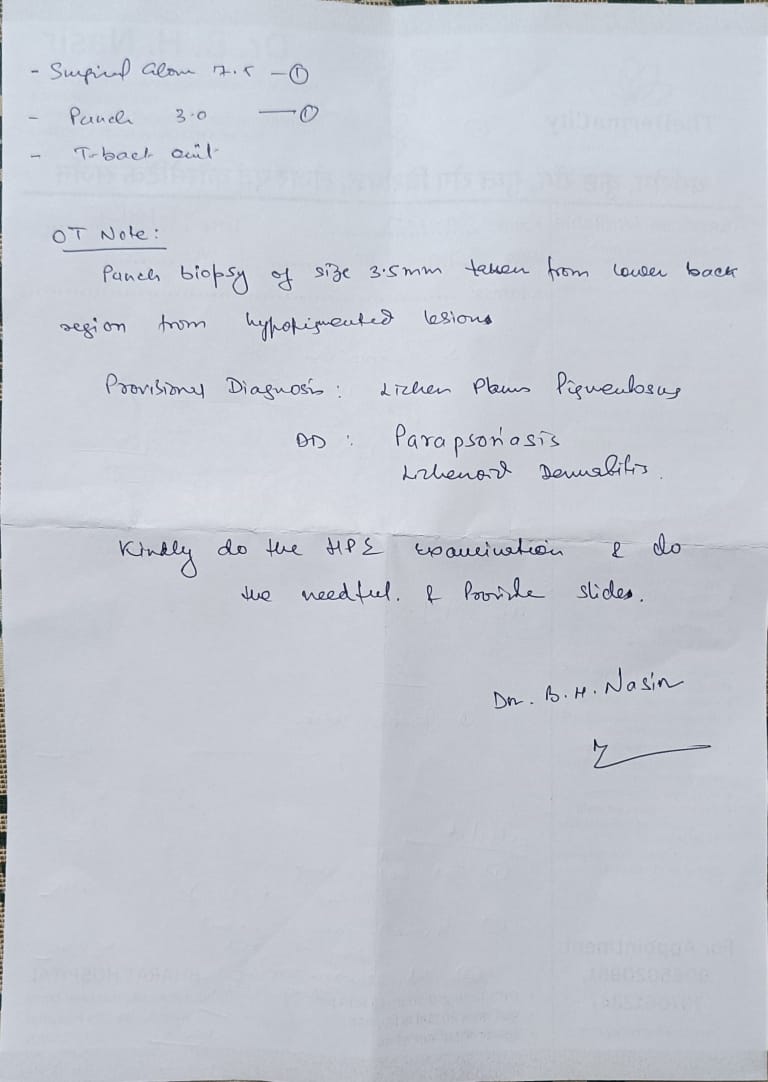 - Surgical Glove 7.5 - ①
- Punch 3.0 — ①
- T-bact oint
OT Note:
Punch biopsy of size 3.5mm taken from lower back
region from hypopigmented lesions
Provisional Diagnosis: Lichen Planus Pigmentosus
DD : Parapsoriasis
Lichenoid Dermatitis.
Kindly do the HPE examination & do
the needful. & Provide slides.
Dr. B. H. Nasir